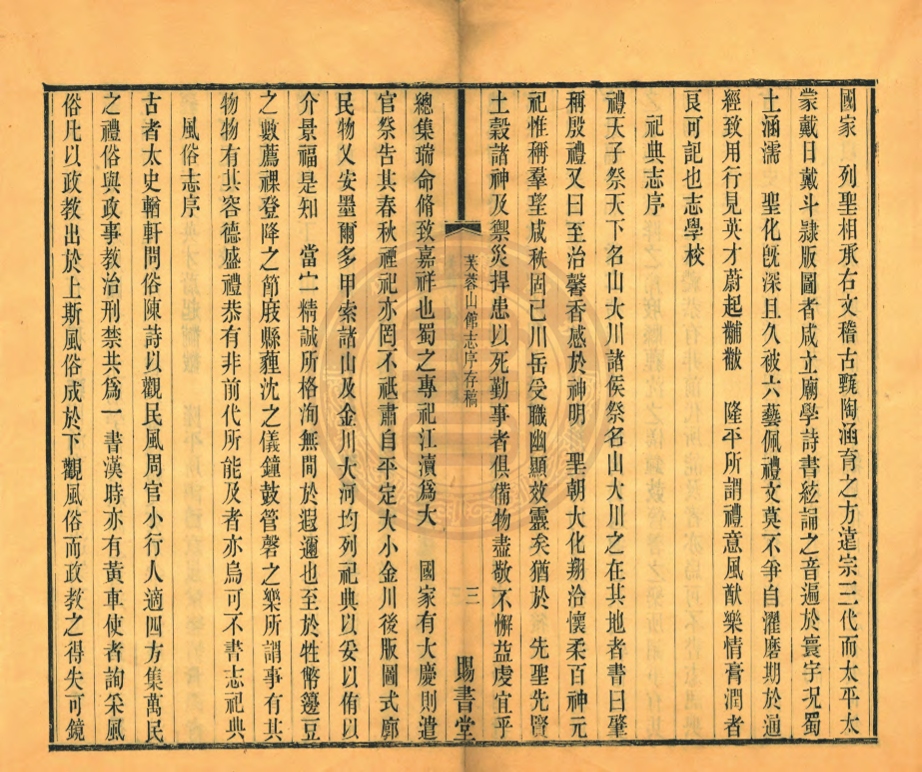 國家　列聖相承右文稽古甄陶涵育之方遠宗三代而太平太
蒙戴日戴斗隸版圖者咸立廟學詩書絃誦之音遍於寰宇况蜀
士涵濡　聖化既深且久被六藝佩禮文莫不爭自濯磨期於通
經致用行見英才蔚起黼黻　隆平所謂禮意風猷樂情膏潤者
良可記也志學校
祀典志序
禮天子祭天下名山大川諸侯祭名山大川之在其地者書曰肇
稱殷禮又曰至治馨香感於神明　聖朝大化翔洽懷柔百神元
祀惟稱羣望咸秩固已川岳受職幽顯效靈矣猶於　先聖先賢
土穀諸神及禦災捍患以死勤事者俱備物盡敬不懈益虔宜乎
芙蓉山館志序存稿
三
賜書堂
總集瑞命脩致嘉祥也蜀之專祀江瀆為大　國家有大慶則遣
官祭告其春秋禋祀亦罔不祗肅自平定大小金川後版圖式廓
民物乂安墨爾多甲索諸山及金川大河均列祀典以妥以侑以
介景福是知　當宁精誠所格洵無間於遐邇也至於牲幣籩豆
之數薦祼登降之節庪縣薶沈之儀鐘鼓管磬之樂所謂事有其
物物有其容德盛禮恭有非前代所能及者亦烏可不書志祀典
風俗志序
古者太史輶軒問俗陳詩以觀民風周官小行人適四方集萬民
之禮俗與政事教治刑禁共爲一書漢時亦有黃車使者詢采風
俗凡以政教出於上斯風俗成於下觀風俗而政教之得失可鏡